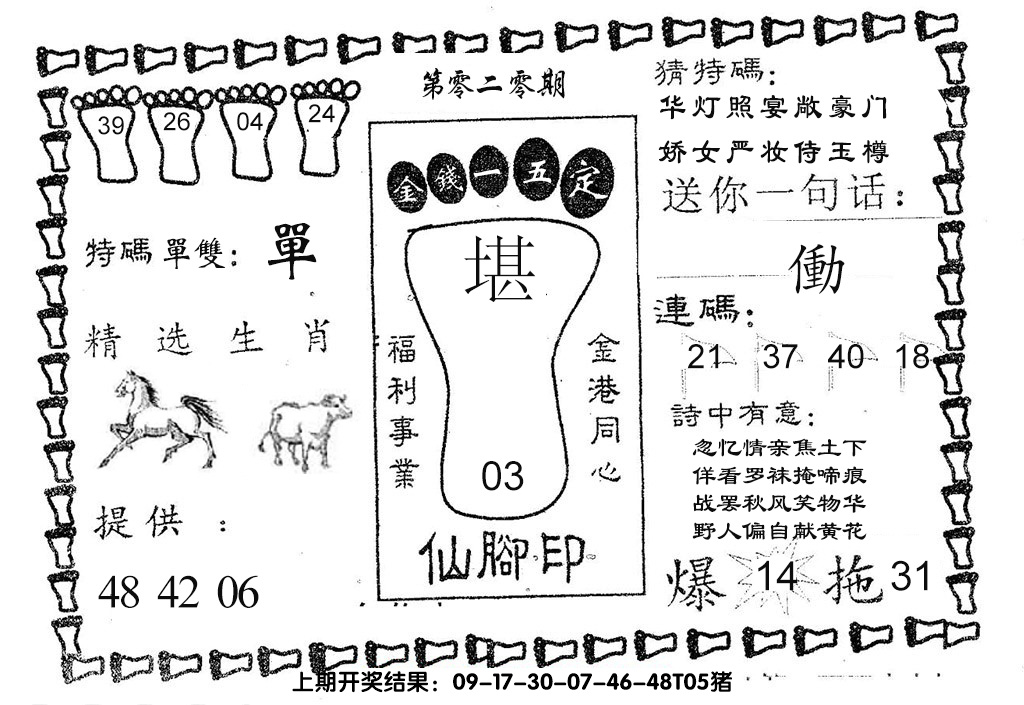 第零二零期
39 26 04 24
特碼單雙：單
精选生肖
提供：
48 42 06
金錢一五定
堪
福利事業
金港同心
03
仙腳印
猜特碼：
华灯照宴敞豪门
娇女严妆侍玉樽
送你一句话：
働
連碼：
21 37 40 18
詩中有意：
忽忆情亲焦土下
佯看罗袜掩啼痕
战罢秋风笑物华
野人偏自献黄花
爆 14 拖 31
上期开奖结果：09-17-30-07-46-48T05猪